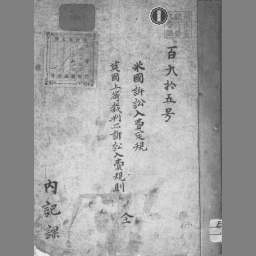 百九拾五号
米國訴訟入費定規
英國上等裁判所訴訟入費規則
全
内記課